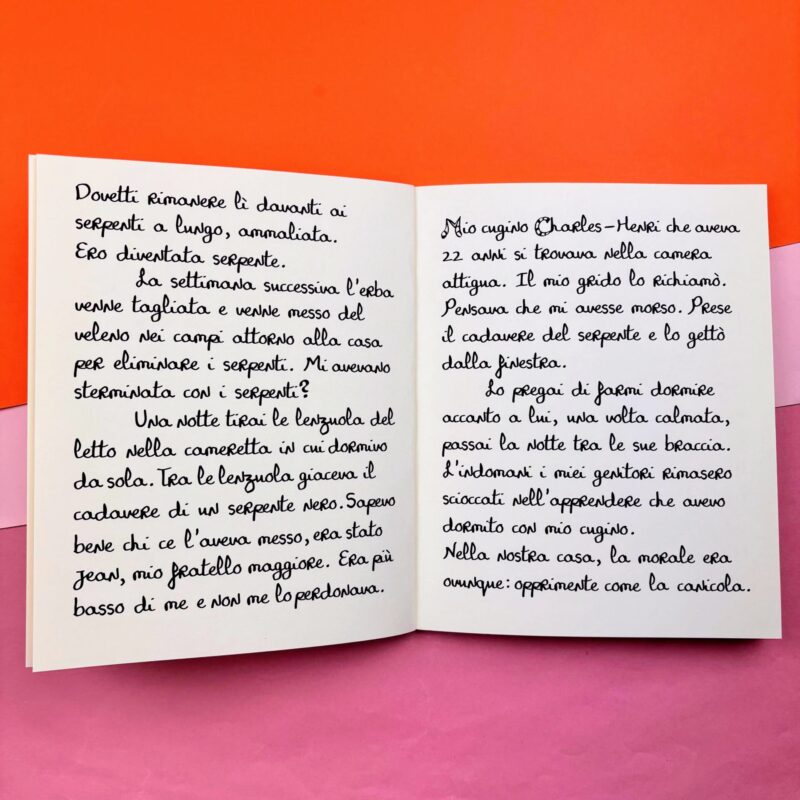 Dovetti rimanere lì davanti ai
serpenti a lungo, ammaliata.
Ero diventata serpente.
La settimana successiva l'erba
venne tagliata e venne messo del
veleno nei campi attorno alla casa
per eliminare i serpenti. Mi avevano
sterminata con i serpenti?
Una notte tirai le lenzuola del
letto nella cameretta in cui dormivo
da sola. Tra le lenzuola giaceva il
cadavere di un serpente nero. Sapevo
bene chi ce l'aveva messo, era stato
Jean, mio fratello maggiore. Era più
basso di me e non me lo perdonava.
Mio cugino Charles-Henri che aveva
22 anni si trovava nella camera
attigua. Il mio grido lo richiamò.
Pensava che mi avesse morso. Prese
il cadavere del serpente e lo gettò
dalla finestra.
Lo pregai di farmi dormire
accanto a lui, una volta calmata,
passai la notte tra le sue braccia.
L'indomani i miei genitori rimasero
scioccati nell'apprendere che avevo
dormito con mio cugino.
Nella nostra casa, la morale era
ovunque: opprimente come la canicola.